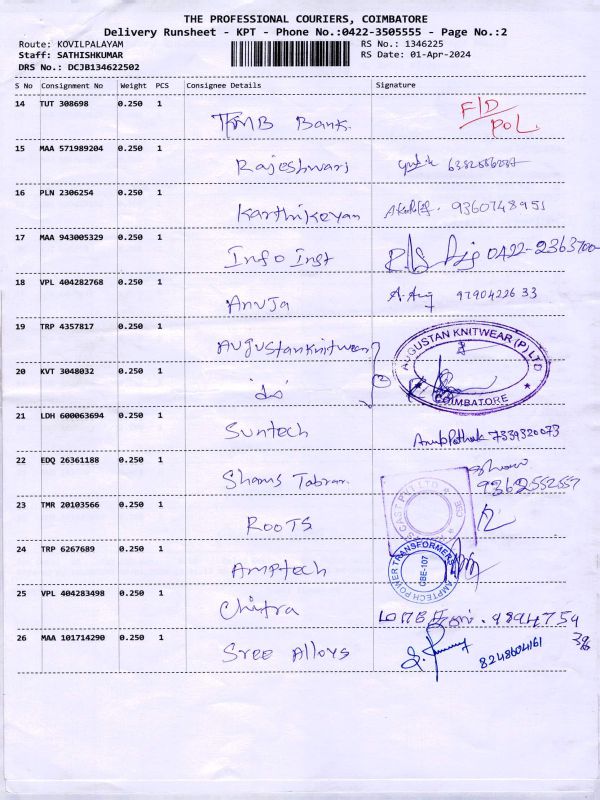 THE PROFESSIONAL COURIERS, COIMBATORE
Delivery Runsheet - KPT - Phone No.:0422-3505555 - Page No.:2
Route: KOVILPALAYAM RS No.: 1346225
Staff: SATHISHKUMAR RS Date: 01-Apr-2024
DRS No.: DCJB134622502
S No Consignment No Weight PCS Consignee Details Signature
14 TUT 308698 0.250 1 TMB Bank F/D
POL
15 MAA 571989204 0.250 1 Rajeshwari
16 PLN 2306254 0.250 1 Karthikeyan 9360748951
17 MAA 943005329 0.250 1 Info Inst 0422-2363700
18 VPL 404282768 0.250 1 Anuja 9790422633
19 TRP 4357817 0.250 1 Augustan Knitwear AUGUSTAN KNITWEAR (P) LTD
COIMBATORE
20 KVT 3048032 0.250 1 do
21 LDH 600063694 0.250 1 Suntech 7339320073
22 EDQ 26361188 0.250 1 Shams Tabran 9362552557
23 TMR 20103566 0.250 1 ROOTS
24 TRP 6267689 0.250 1 Amptech AMPTECH POWER TRANSFORMERS
CBE-107
25 VPL 404283498 0.250 1 Chitra
26 MAA 101714290 0.250 1 Sree Alloys 8248604161